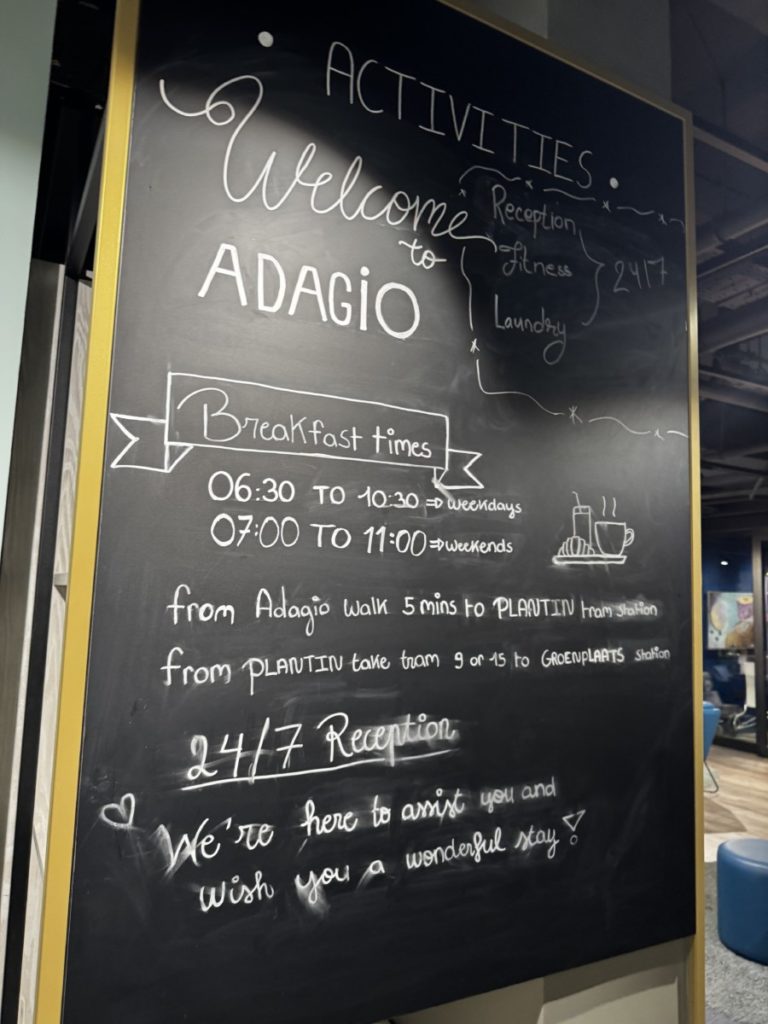 • ACTIVITIES •
Welcome
to
ADAGiO
Reception
fitness
Laundry
24/7
Breakfast times
06:30 TO 10:30 ⇒ weekdays
07:00 TO 11:00 ⇒ weekends
from Adagio walk 5 mins to PLANTIN tram station
from PLANTIN take tram 9 or 15 to GROENPLAATS station
24/7 Reception
We're here to assist you and
wish you a wonderful stay!